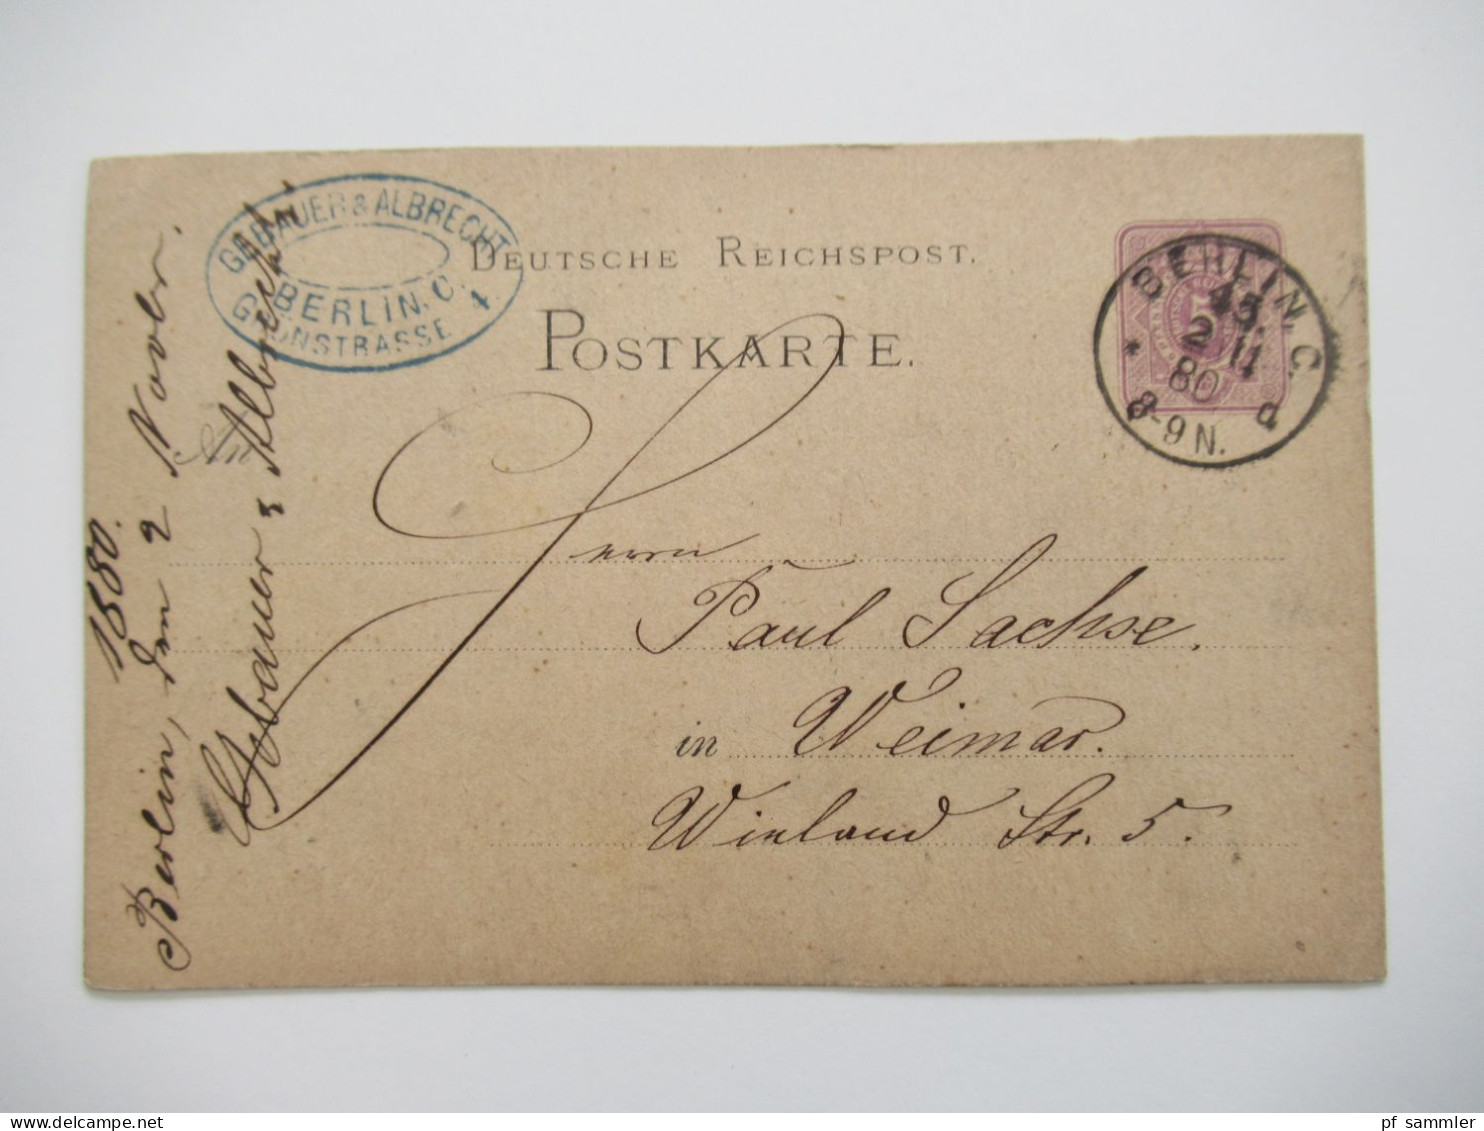 GEBAUER & ALBRECHT
BERLIN. C.
GRÜNSTRASSE 4.
DEUTSCHE REICHSPOST.
POSTKARTE.
BERLIN. C.
2 11
80
8-9 N.
An
Herrn
Paul Sachse.
in Weimar.
Wieland Str. 5.
Berlin, den 2 Novbr.
1880.
Gebauer & Albrecht
pf sammler